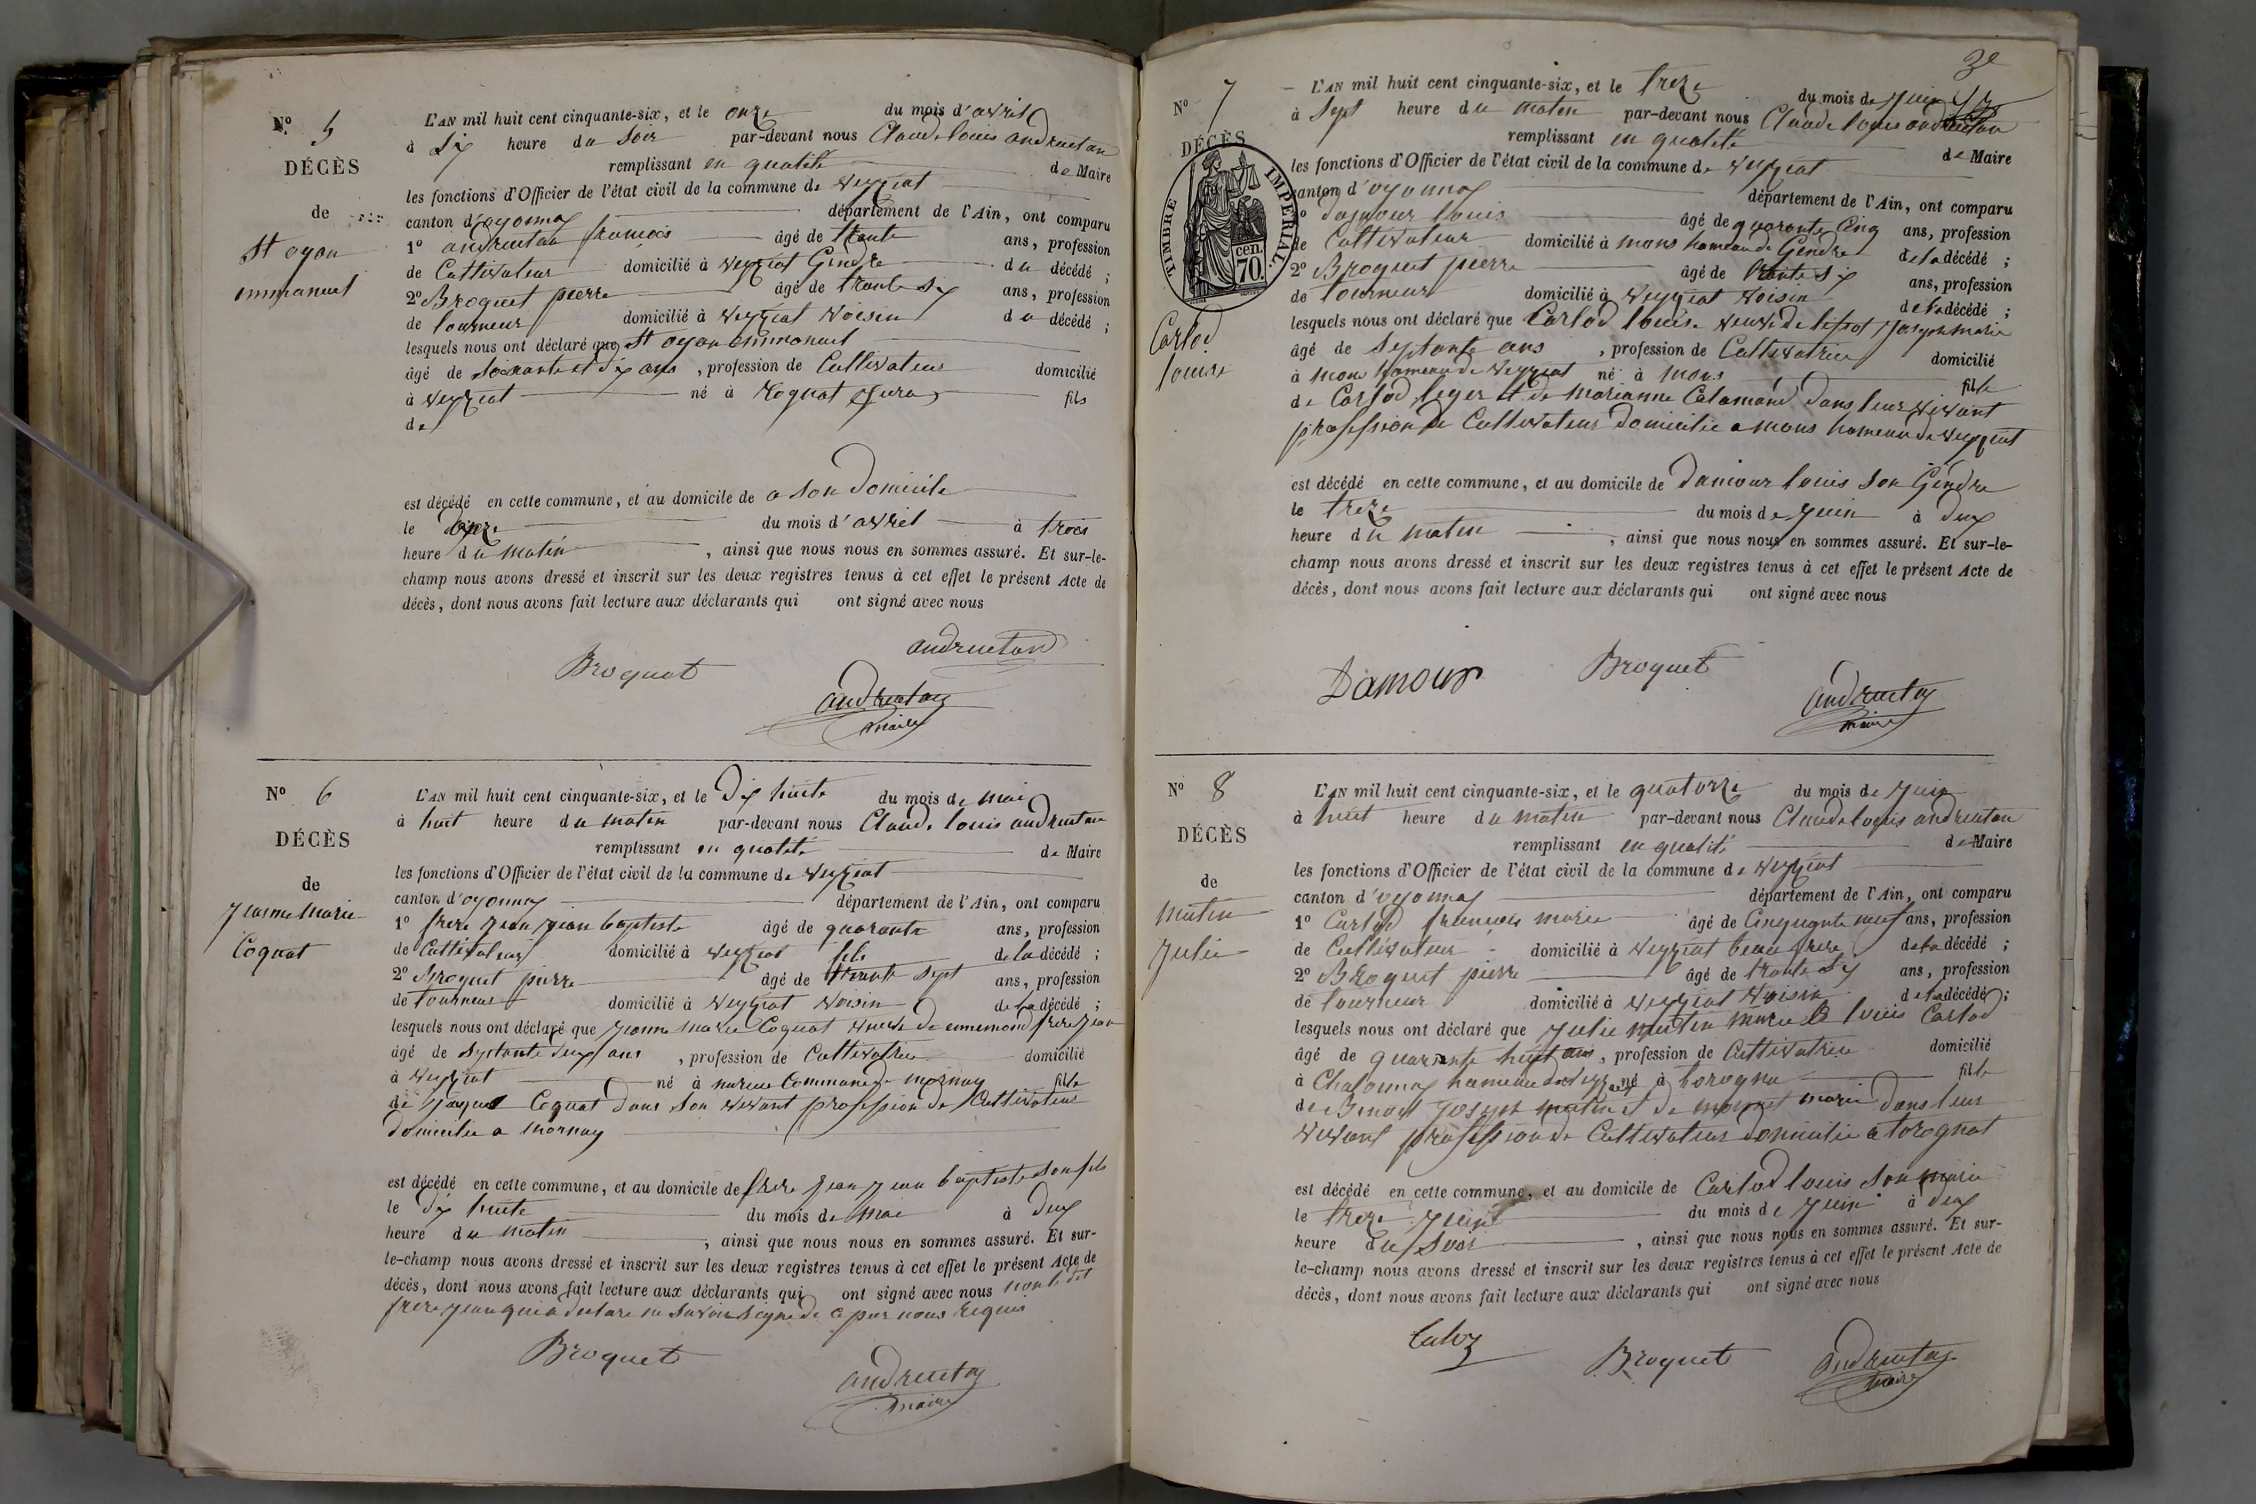 N.º 5
DÉCÈS
de
St oyan
emmanuel
L'AN mil huit cent cinquante-six, et le onze du mois d'avril
à Six heure du Soir par-devant nous Claude louis andruetan
remplissant en qualité de Maire
les fonctions d'Officier de l'état civil de la commune de veyziat
canton d'oyonnax département de l'Ain, ont comparu
1º andruetan françois âgé de trente ans, profession
de Cultivateur domicilié à veyziat Gendre du décédé ;
2º Broquet pierre âgé de trente six ans, profession
de tourneur domicilié à veyziat voisin du décédé ;
lesquels nous ont déclaré que St oyan emmanuel
âgé de Soixante et dix ans , profession de Cultivateur domicilié
à veyziat né à Rognat jura fils
de
est décédé en cette commune, et au domicile de a son Domicile
le onze du mois d'avril à trois
heure du matin , ainsi que nous nous en sommes assuré. Et sur-le-
champ nous avons dressé et inscrit sur les deux registres tenus à cet effet le présent Acte de
décès, dont nous avons fait lecture aux déclarants qui ont signé avec nous
andruetan
Broquet
andruetan
maire
Nº 6
DÉCÈS
de
jeanne marie
Coquat
L'AN mil huit cent cinquante-six, et le Dix huite du mois de mai
à huit heure du matin par-devant nous Claude louis andruetan
remplissant en qualité de Maire
les fonctions d'Officier de l'état civil de la commune de veyziat
canton d'oyonnax département de l'Ain, ont comparu
1º frere jean jean baptiste âgé de quarante ans, profession
de Cultivateur domicilié à veyziat fils de la décédé ;
2º Broquet pierre âgé de trente sept ans, profession
de tourneur domicilié à veyziat voisin de la décédé ;
lesquels nous ont déclaré que jeanne marie Coquat veuve de ennemond frere jean
âgé de Septante deux ans , profession de Cultivatrice domicilié
à veyziat né à Commune de mornay fille
de Coquat dans son vivant profession de Cultivateur
domicilie a mornay
est décédé en cette commune, et au domicile de frere jean jean baptiste son fils
le dix huite du mois de mai à deux
heure du matin , ainsi que nous nous en sommes assuré. Et sur-
le-champ nous avons dressé et inscrit sur les deux registres tenus à cet effet le présent Acte de
décès, dont nous avons fait lecture aux déclarants qui ont signé avec nous non le dit
frere jean qui a declare ne savoir signe de ce par nous requis
Broquet
andruetan
maire
3e
Nº 7
DÉCÈS
TIMBRE IMPÉRIAL
70 cen.
Carlod
louise
L'AN mil huit cent cinquante-six, et le treze du mois de juin
à Sept heure du matin par-devant nous Claude louis andruetan
remplissant en qualité de Maire
les fonctions d'Officier de l'état civil de la commune de veyziat
canton d'oyonnax département de l'Ain, ont comparu
1º damour louis âgé de quarante Cinq ans, profession
de Cultivateur domicilié à mons hameau de Gendre de la décédé ;
2º Broquet pierre âgé de trente six ans, profession
de tourneur domicilié à veyziat voisin de la décédé ;
lesquels nous ont déclaré que Carlod louise veuve de joseph marie
âgé de Septante ans , profession de Cultivatrice domicilié
à mons hameau de veyziat né à mons fille
de Carlod leger et de marianne Calamand dans leur vivant
profession de Cultivateur domicilie a mons hameau de veyziat
est décédé en cette commune, et au domicile de Damour louis son Gendre
le treze du mois de juin à deux
heure du matin , ainsi que nous nous en sommes assuré. Et sur-le-
champ nous avons dressé et inscrit sur les deux registres tenus à cet effet le présent Acte de
décès, dont nous avons fait lecture aux déclarants qui ont signé avec nous
Damour
Broquet
andruetan
maire
Nº 8
DÉCÈS
de
mutin
julie
L'AN mil huit cent cinquante-six, et le quatorze du mois de juin
à huit heure du matin par-devant nous Claude louis andruetan
remplissant en qualité de Maire
les fonctions d'Officier de l'état civil de la commune de veyziat
canton d'oyonnax département de l'Ain, ont comparu
1º Carlod françois marie âgé de Cinquante neuf ans, profession
de Cultivateur domicilié à veyziat beau frere de la décédé ;
2º Broquet pierre âgé de trente six ans, profession
de tourneur domicilié à veyziat voisin de la décédé ;
lesquels nous ont déclaré que julie mutin louis Carlod
âgé de quarante huit ans , profession de Cultivatrice domicilié
à Chatonnax hameau de veyziat né à torogna fille
de Benoit joseph mutin et de marie dans leur
vivant profession de Cultivateur domicilie a torognat
est décédé en cette commune, et au domicile de Carlod louis son mari
le treze juin du mois de juin à deux
heure du Soir , ainsi que nous nous en sommes assuré. Et sur-
le-champ nous avons dressé et inscrit sur les deux registres tenus à cet effet le présent Acte de
décès, dont nous avons fait lecture aux déclarants qui ont signé avec nous
Broquet
andruetan
maire